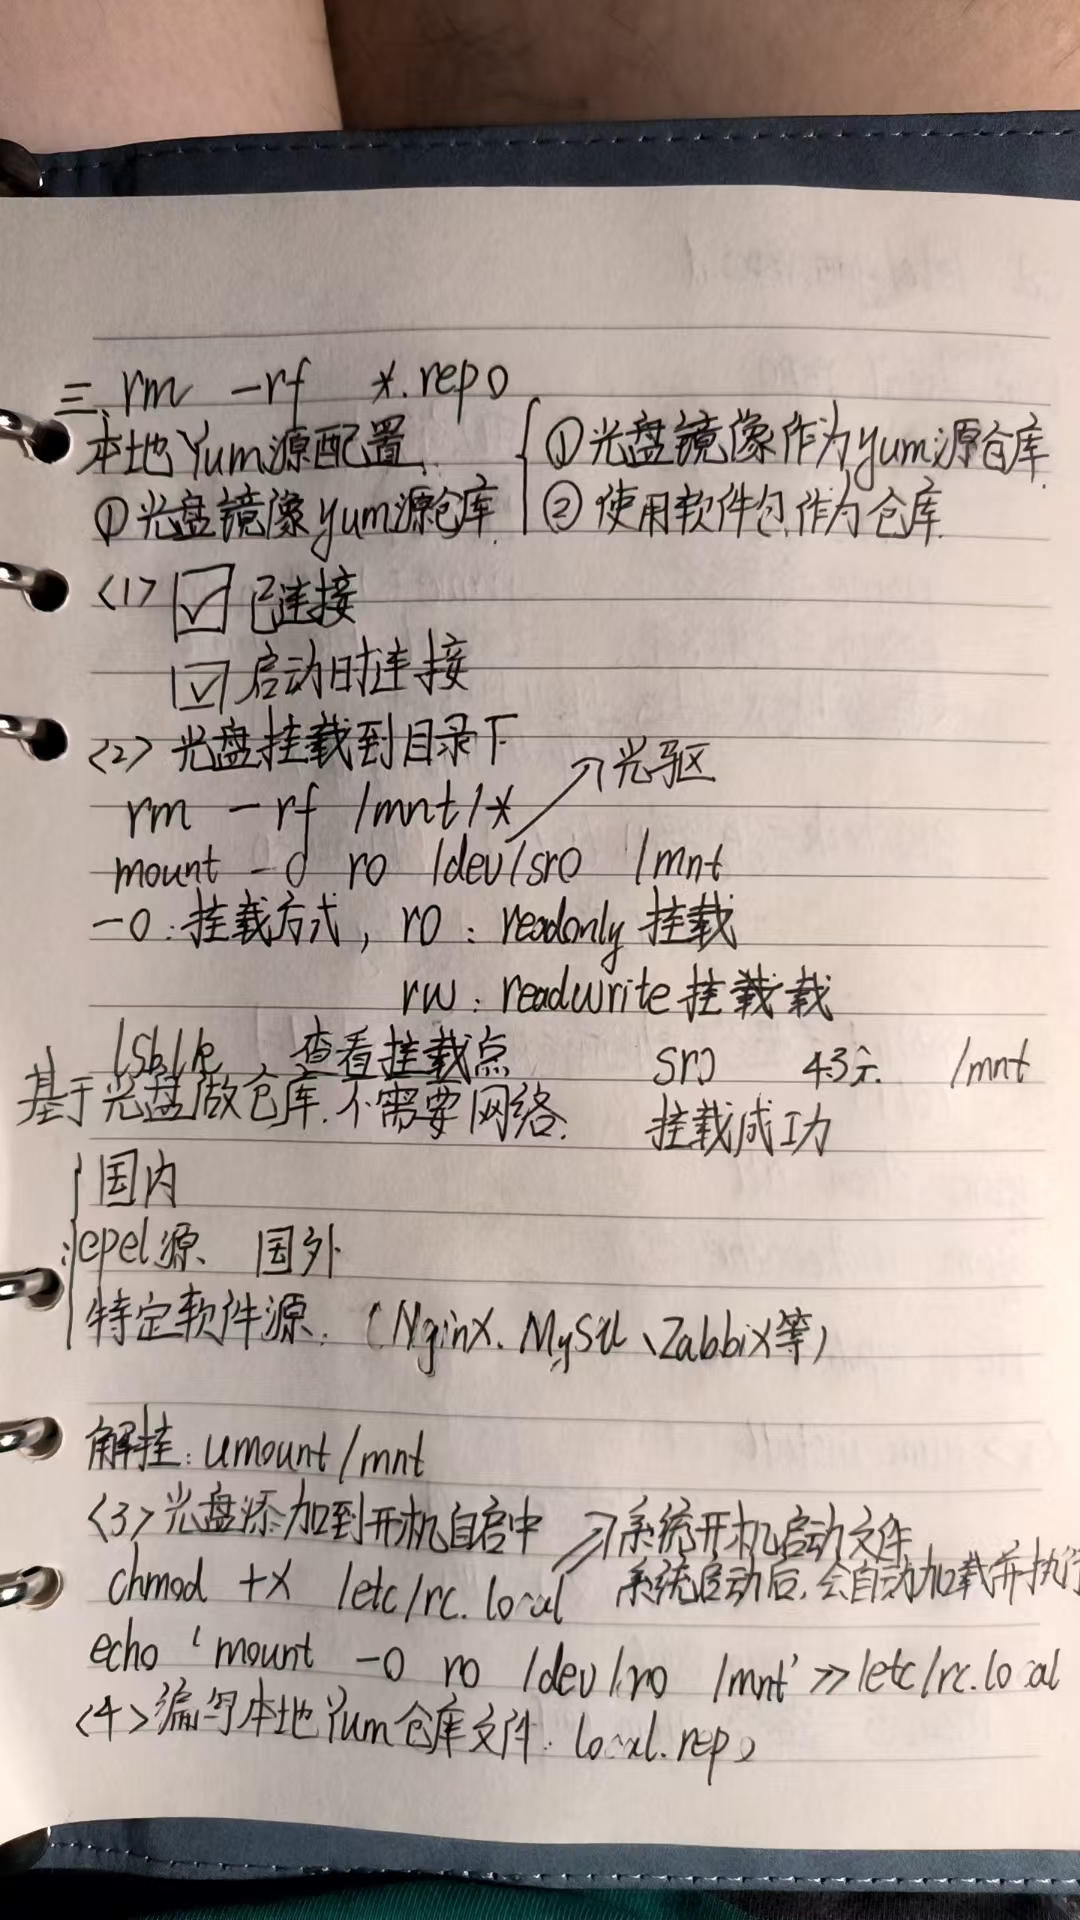 三、rm -rf *.repo
本地Yum源配置.
①光盘镜像yum源仓库.
①光盘镜像作为yum源仓库.
②使用软件包作为仓库.
<1> ☑ 已连接
☑ 启动时连接
<2> 光盘挂载到目录下
rm -rf /mnt/* ↗光驱
mount -o ro /dev/sr0 /mnt
-o:挂载方式, ro: readonly挂载
rw: readwrite挂载载
lsblk 查看挂载点 sr0 4.3 /mnt
基于光盘做仓库.不需要网络. 挂载成功
国内
epel源、 国外
特定软件源. (Nginx、MySql、Zabbix等)
解挂: umount /mnt
<3> 光盘添加到开机自启中 ↗系统开机启动文件
chmod +x /etc/rc.local 系统启动后,会自动加载并执行
echo 'mount -o ro /dev/ro /mnt' >> /etc/rc.local
<4> 编写本地Yum仓库文件. local.repo